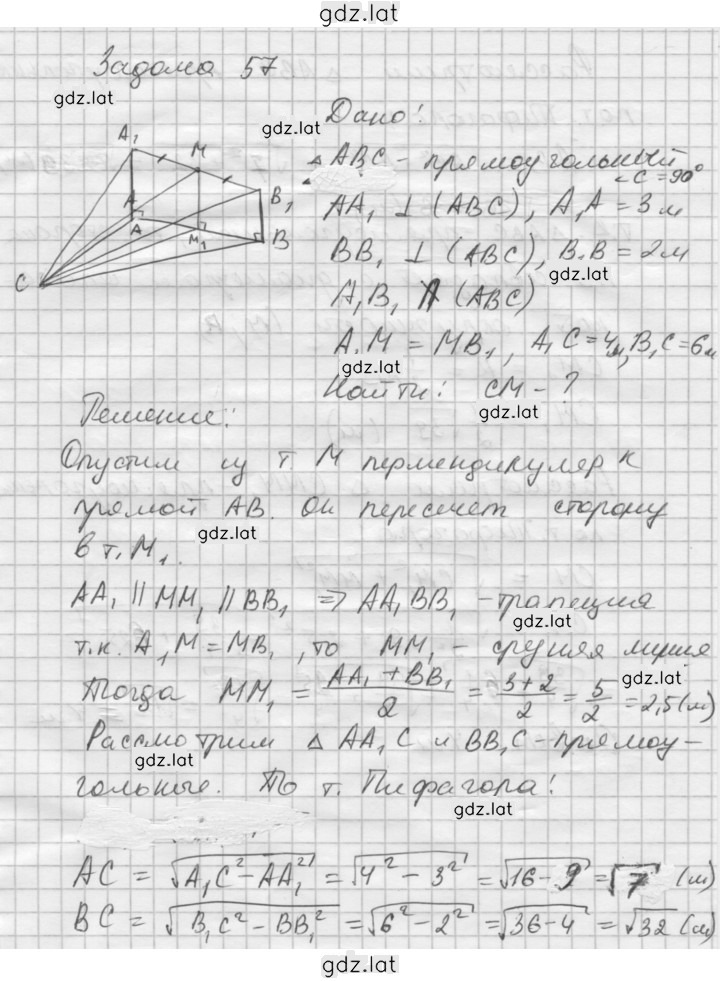 gdz.lat
Задача 57
gdz.lat
Дано:
gdz.lat
△ ABC - прямоугольный
∠C = 90°
AA₁ ⊥ (ABC), A₁A = 3 м
BB₁ ⊥ (ABC), B₁B = 2 м
gdz.lat
A₁B₁ ∦ (ABC)
A₁M = MB₁, A₁C = 4 м, B₁C = 6 м
gdz.lat
Найти: CM - ?
gdz.lat
A₁
M
B₁
A
A
M₁
B
C
Решение:
Опустим из т. M перпендикуляр к
прямой AB. Он пересечет сторону
gdz.lat
в т. M₁.
AA₁ || MM₁ || BB₁ ⇒ AA₁BB₁ - трапеция
gdz.lat
т.к. A₁M = MB₁, то MM₁ - средняя линия
gdz.lat
Тогда MM₁ = (AA₁ + BB₁)/2 = (3+2)/2 = 5/2 = 2,5 (м)
Рассмотрим △ AA₁C и BB₁C - прямоу-
gdz.lat
гольные. По т. Пифагора:
gdz.lat
AC = √(A₁C² - AA₁²) = √(4² - 3²) = √(16 - 9) = √7 (м)
BC = √(B₁C² - BB₁²) = √(6² - 2²) = √(36 - 4) = √32 (м)
gdz.lat